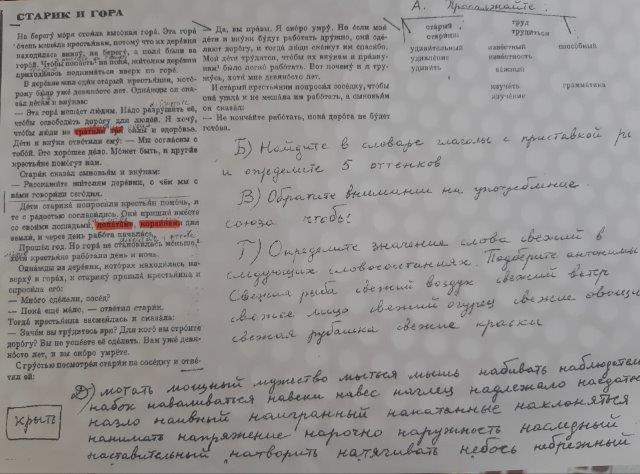 СТАРИК И ГОРА
На берегу моря стояла высокая гора. Эта гора
очень мешала крестьянам, потому что их деревня
находилась внизу, на берегу, а поля были на
горой. Чтобы попасть на поля, жителям деревни
приходилось подниматься вверх по горе.
В деревне жил один старый крестьянин, кото-
рому было уже девяносто лет. Однажды он ска-
зал детям и внукам:
— Эта гора мешает людям. Надо разрушить её,
чтобы освободить дорогу для людей. Я хочу,
чтобы люди не тратили зря силы и здоровье.
Дети и внуки ответили ему: — Мы согласны с
тобой. Это хорошее дело. Может быть, и другие
крестьяне помогут нам.
Старик сказал сыновьям и внукам:
— Расскажите жителям деревни, о чём мы с
вами говорили сегодня.
Дети старика попросили крестьян помочь, и
те с радостью согласились. Они пришли вместе
со своими лошадьми, лопатами, корзинами для
земли, и через день работа началась.
Прошёл год. Но гора не становилась меньше,
хотя крестьяне работали день и ночь.
Однажды из деревни, которая находилась на-
верху и горах, к старику пришла крестьянка и
спросила его:
— Много сделали, сосед?
— Пока ещё мало, — ответил старик.
Тогда крестьянка засмеялась и сказала:
— Зачем вы трудитесь зря? Для кого вы строите
дорогу? Вы не успеете её сделать. Вам уже девя-
носто лет, и вы скоро умрёте.
С грустью посмотрел старик на соседку и отве-
тил ей:
— Да, вы правы. Я скоро умру. Но если мои
дети и внуки будут работать дружно, они сде-
лают дорогу, и тогда люди скажут им спасибо.
Мой дети трудятся, чтобы их внукам и правну-
кам было легко работать. Вот почему и я тру-
жусь, хотя мне девяносто лет.
И старый крестьянин попросил соседку, чтобы
она ушла и не мешала им работать, а сыновьям
он сказал:
— Не кончайте работать, пока дорога не будет
готова.
А. Продолжайте:
старый труд
старики трудиться
удивительный известный способный
удивление известность
удивить важный
изучать грамматика
изучение
Б) Найдите в словаре глаголы с приставкой
и определите 5 оттенков
В) Обратите внимании на употребление
союза чтобы
Г) Определите значение слова свежий в
следующих словосочетаниях. Подберите антонимы
Свежая рыба свежий воздух свежий ветр
свежее лицо свежий огурец свежие овощи
свежая рубашка свежие краски
Д) мотать мощный мужество мыться мышь набивать наблюдател
набок наваливаться навеки навес наглец надлежало наедатьс
назло наивный наигранный накатанные наклоняться
нанимать напряжение нарочно наружность наследный
наставительный натворить натягивать небось небрежный
крыть